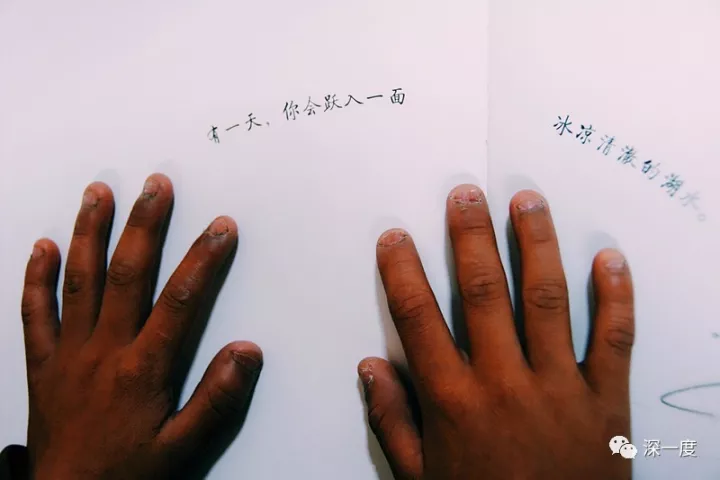 有一天，你会跃入一面
冰凉清澈的湖水。
深一度